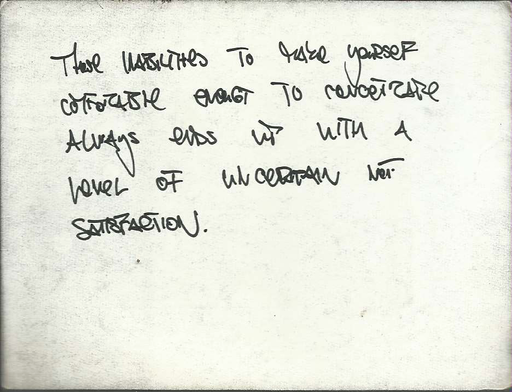 Those inabilities to make yourself
comfortable enough to concentrate
always ends up with a
level of uncertain not
satisfaction.